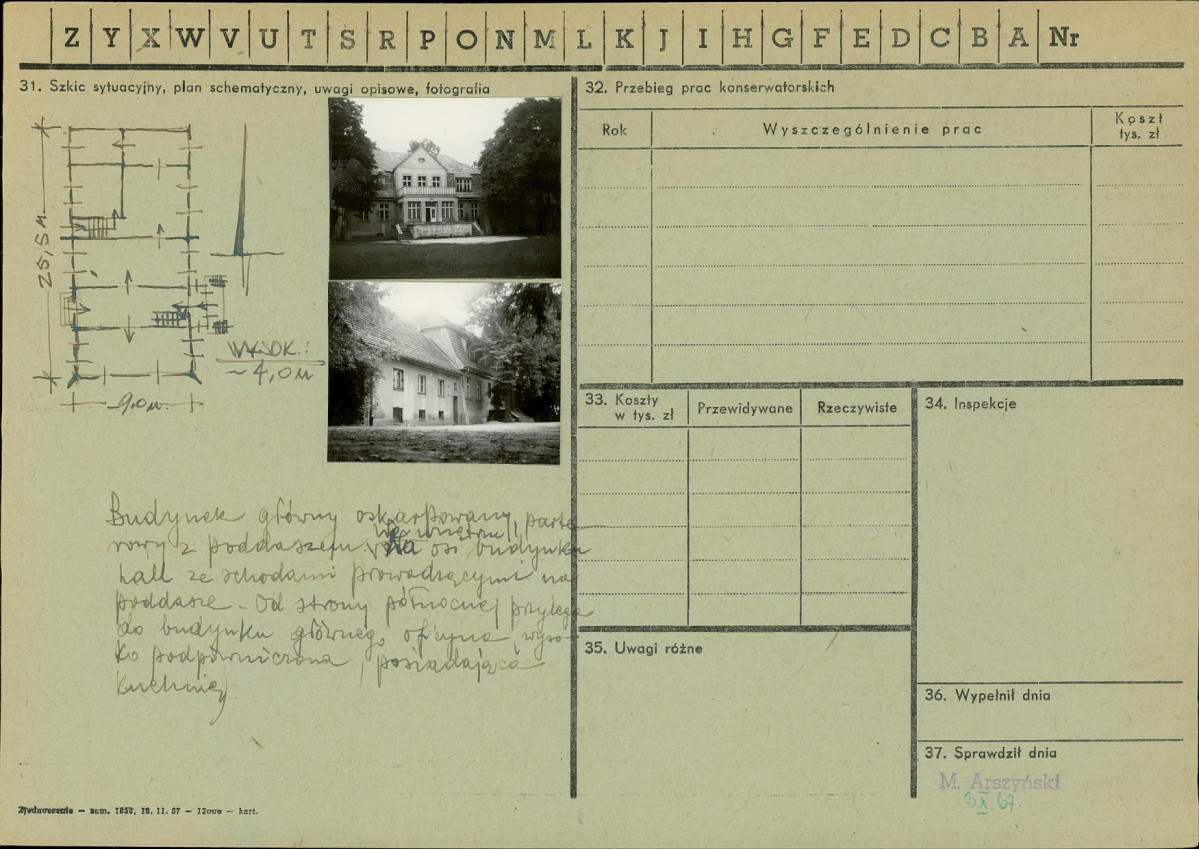 Z Y X W V U T S R P O N M L K J I H G F E D C B A Nr
31. Szkic sytuacyjny, plan schematyczny, uwagi opisowe, fotografia
25,5 M.
WYSOK.:
~ 4,0 M
9,0 M.
Budynek główny oskarpowany, parte
rowy z poddaszem. Wewnątrz,
Na osi budynku
hall ze schodami prowadzącymi na
poddasze - Od strony północnej przylega
do budynku głównego oficyna, wyso-
ko podpiwniczona, posiadająca
kuchnię.
Zjednoczenie — zam. 1858, 10. 11. 57 — — kart.
32. Przebieg prac konserwatorskich
Rok
Wyszczególnienie prac
Koszt
tys. zł
33. Koszty
w tys. zł
Przewidywane
Rzeczywiste
34. Inspekcje
35. Uwagi różne
36. Wypełnił dnia
37. Sprawdził dnia
M. Arszyński
3.X.67.